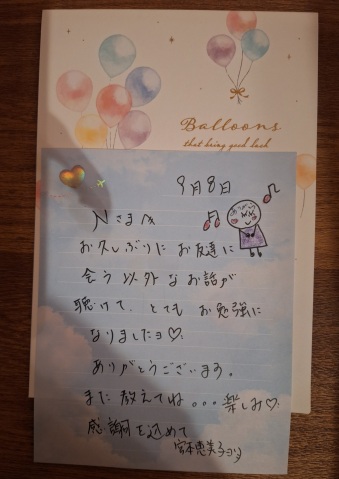 Balloons
that bring good luck
9月8日
Nさまへ
お久しぶりにお友達に
会う以外なお話が
聴けて、とてもお勉強に
なりましたヨ♡
ありがとうございます。
また教えてね。。。楽しみ♡
感謝を込めて
宮本恵美子